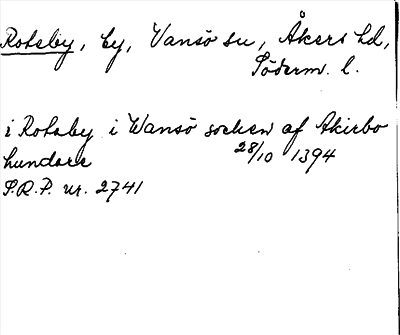 Rotsby, by, Vansö sn, Åkers hd,
Söderm. l.
i Rotsby i Wansö socken af Akirbo
hundare 28/10 1394
S.R.P. nr. 2741